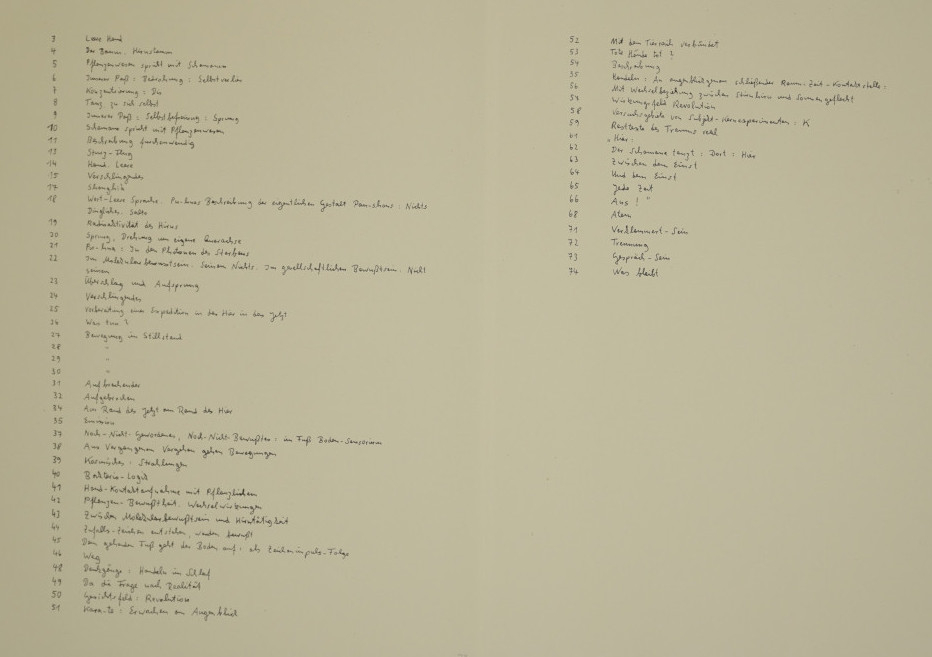 3 Leere Hand
4 Der Baum. Hirnstamm
5 Pflanzenwesen spricht mit Schamanen
6 Innerer Paß: Bedrohung: Selbstverlies
7 Konzentrierung: Du
8 Tanz zu sich selbst
9 Innerer Paß: Selbstbefreiung: Sprung
10 Schamane spricht mit Pflanzenwesen
11 Beschreibung
13 Sturz-Flug
14 Hand. Leere
15 Verschlingendes
17 Shanghik
18 Wort-Leere Sprache. Beschreibung der eigentlichen Gestalt : Nichts
Dingliches. Salto
19 Radioaktivität des Hirns
20 Sprung, Drehung um eigene Querachse
21 : In den Photonen des Sterbens
22 Im Molekularbewusstsein. Seinem Nichts. Im gesellschaftlichen Bewußtsein. Nicht
seinem
23 Überschlag und Aufsprung
24 Verschlingendes
25 Vorbereitung einer Expedition in das Hier in das Jetzt
26 Was tun?
27 Bewegung im Stillstand
28 "
29 "
30 "
31 Aufbrechendes
32 Aufgebrochen
34 Am Rand des Jetzt am Rand des Hier
35 Emission
37 Noch-Nicht-Gewordenes, Noch-Nicht-Bewußtes: im Fuß Boden-Sensorium
38 Aus Vergangenem Vergehen gehen Bewegungen
39 Kosmisches: Strahlungen
40 Bakterio-Logik
41 Hand-Kontaktaufnahme mit Pflanzlichem
42 Pflanzen-Bewußtheit. Wechselwirkungen
43 Zwischen Molekularbewußtsein und Hirntätigkeit
44 Zufalls-Zeichen entstehen, werden bewußt
45 Dem gehenden Fuß geht der Boden auf: als Zeichenimpuls-Folge
46 Weg
48 Denkgänge: Handeln im Schlaf
49 Da die Frage nach Realität
50 Gesichtsfeld: Revolution
51 Kara-te: Erwachen am Augenblick
52 Mit dem Tierreich verbündet
53 Tote Hände tot?
54 Beschreibung
55 Handeln: In augenblicksgenau schließender Raum-Zeit-Kontaktstelle:
56 Mit Wechselbeziehung zwischen Stirnhirn und Sonnengeflecht
57 Wirkungsfeld Revolution
58 Versuchsgebiete von Subjekt-Kernexperimenten: K
59 Restteste des Traums real
61 "Hier:
62 Der Schamane tanzt: Dort: Hier
63 Zwischen dem Einst
64 Und dem Einst
65 Jede Zeit
66 Aus! "
68 Atem
71 Verklammert-Sein
72 Trennung
73 Gespräch-Sein
74 Was bleibt